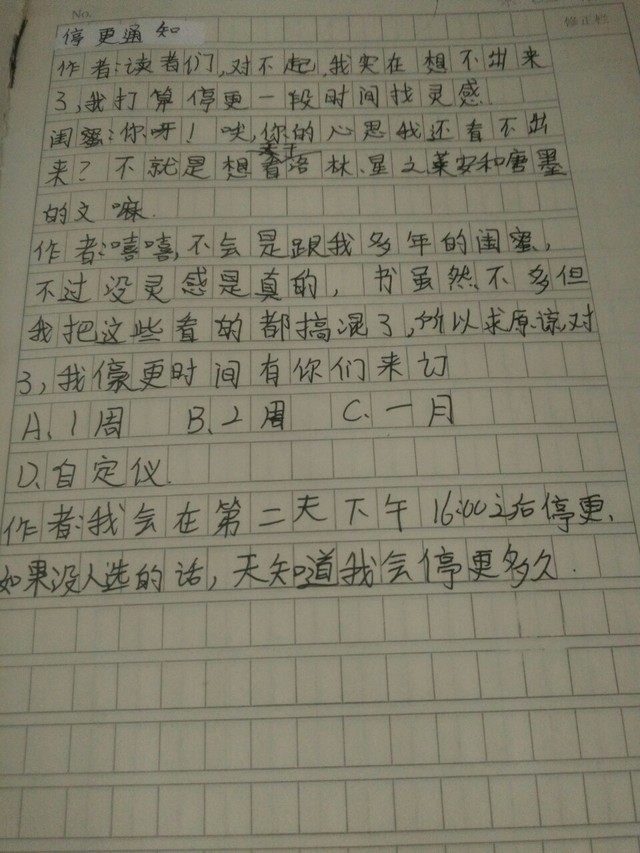 No.
修正栏
停更通知
作者:读者们,对不起,我实在想不出来
了,我打算停更一段时间找灵感.
闺蜜:你呀!哎,你的心思我还看不出
关于
来?不就是想看语林、星之莱安和唐墨
的文嘛.
作者:嘻嘻,不会是跟我多年的闺蜜,
不过没灵感是真的,书虽然不多但
我把这些看的都搞混了,所以求原谅,对
了,我停更时间有你们来订
A、1周 B、2周 C、一月
D、自定仪.
作者:我会在第二天下午16:00之后停更,
如果没人选的话,天知道我会停更多久.